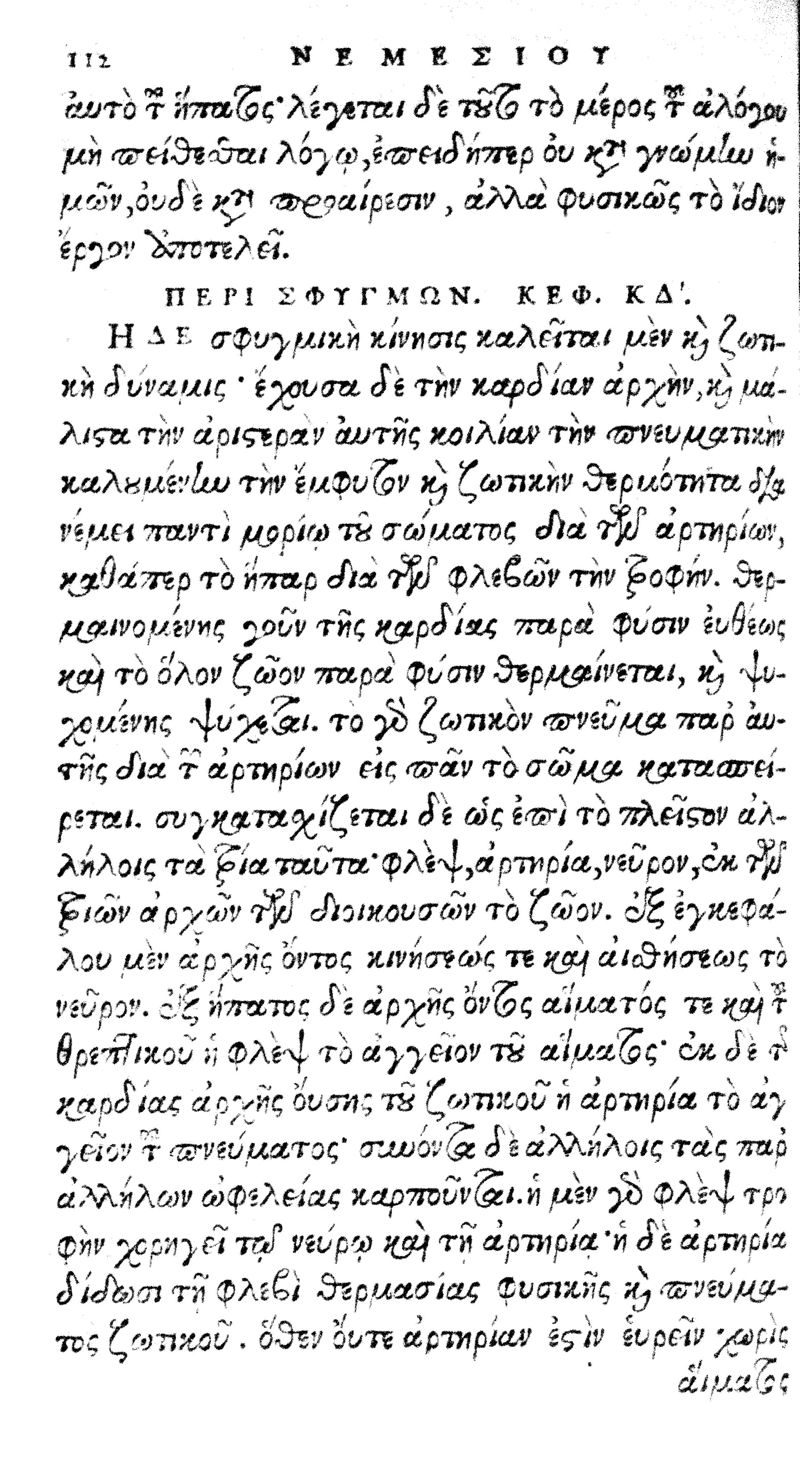 112 ΝΕΜΕΣΙΟΥ
ἀυτὸ τ͂ ἥπατος· λέγεται δὲ τοῦτο τὸ μέρος τ͂ ἀλόγου
μὴ πείθεσθαι λόγῳ, ἐπειδήπερ ὀυ κτ̀ γνώμην ἡ-
μῶν, ὀυδὲ κτ̀ προαίρεσιν, ἀλλὰ φυσικῶς τὸ ἴδιον
ἔργον ἀποτελεῖ.
ΠΕΡΙ ΣΦΥΓΜΩΝ. ΚΕΦ. ΚΔ΄.
Η ΔΕ σφυγμικὴ κίνησις καλεῖται μὲν κϳ ζωτι-
κὴ δύναμις· ἔχουσα δὲ τὴν καρδίαν ἀρχὴν, κϳ μά-
λιϛα τὴν ἀριϛερὰν ἀυτῆς κοιλίαν τὴν πνευματικὴν
καλȣμένην τὴν ἔμφυτον κϳ ζωτικὴν θερμότητα δια
νέμει παντὶ μορίῳ τȣ͂ σώματος διὰ τῶν ἀρτηρίων,
καθάπερ τὸ ἧπαρ διὰ τῶν φλεβῶν τὴν τροφήν. θερ-
μαινομένης γοῦν τῆς καρδίας παρὰ φύσιν ἐυθέως
καὶ τὸ ὅλον ζῶον παρὰ φύσιν θερμαίνεται, κϳ ψυ-
χομένης ψύχεται. τὸ γὸ ζωτικὸν πνεῦμα παρ᾽ ἀυ-
τῆς διὰ τ͂ ἀρτηρίων εἰς πᾶν τὸ σῶμα κατασπεί-
ρεται. συγκαταχίζεται δὲ ὡς ἐπὶ τὸ πλεῖϛον ἀλ-
λήλοις τὰ τρία ταῦτα· φλὲψ, ἀρτηρία, νεῦρον, ἐκ τῶν
τριῶν ἀρχῶν τῶν διοικουσῶν τὸ ζῶον. ἐξ ἐγκεφά-
λου μὲν ἀρχῆς ὄντος κινήσεώς τε καὶ ἀισθήσεως τὸ
νεῦρον. ἐξ ἥπατος δὲ ἀρχῆς ὄντος αἵματός τε καὶ τ͂
θρεπτικοῦ ἡ φλὲψ τὸ ἀγγεῖον τȣ͂ αἵματος· ἐκ δὲ τ͂
καρδίας ἀρχῆς ὄυσης τȣ͂ ζωτικοῦ ἡ ἀρτηρία τὸ ἀγ
γεῖον τ͂ πνεύματος· συνόντα δὲ ἀλλήλοις τὰς παρ᾽
ἀλλήλων ὠφελείας καρποῦνται. ἡ μὲν γὸ φλὲψ τρο
φὴν χορηγεῖ τῷ νεύρῳ καὶ τῇ ἀρτηρία· ἡ δὲ ἀρτηρία
δίδωσι τῇ φλεβὶ θερμασίας φυσικῆς κϳ πνεύμα-
τος ζωτικοῦ. ὅθεν ὄυτε ἀρτηρίαν ἐϛὶν ἑυρεῖν χωρὶς
ἅιματος